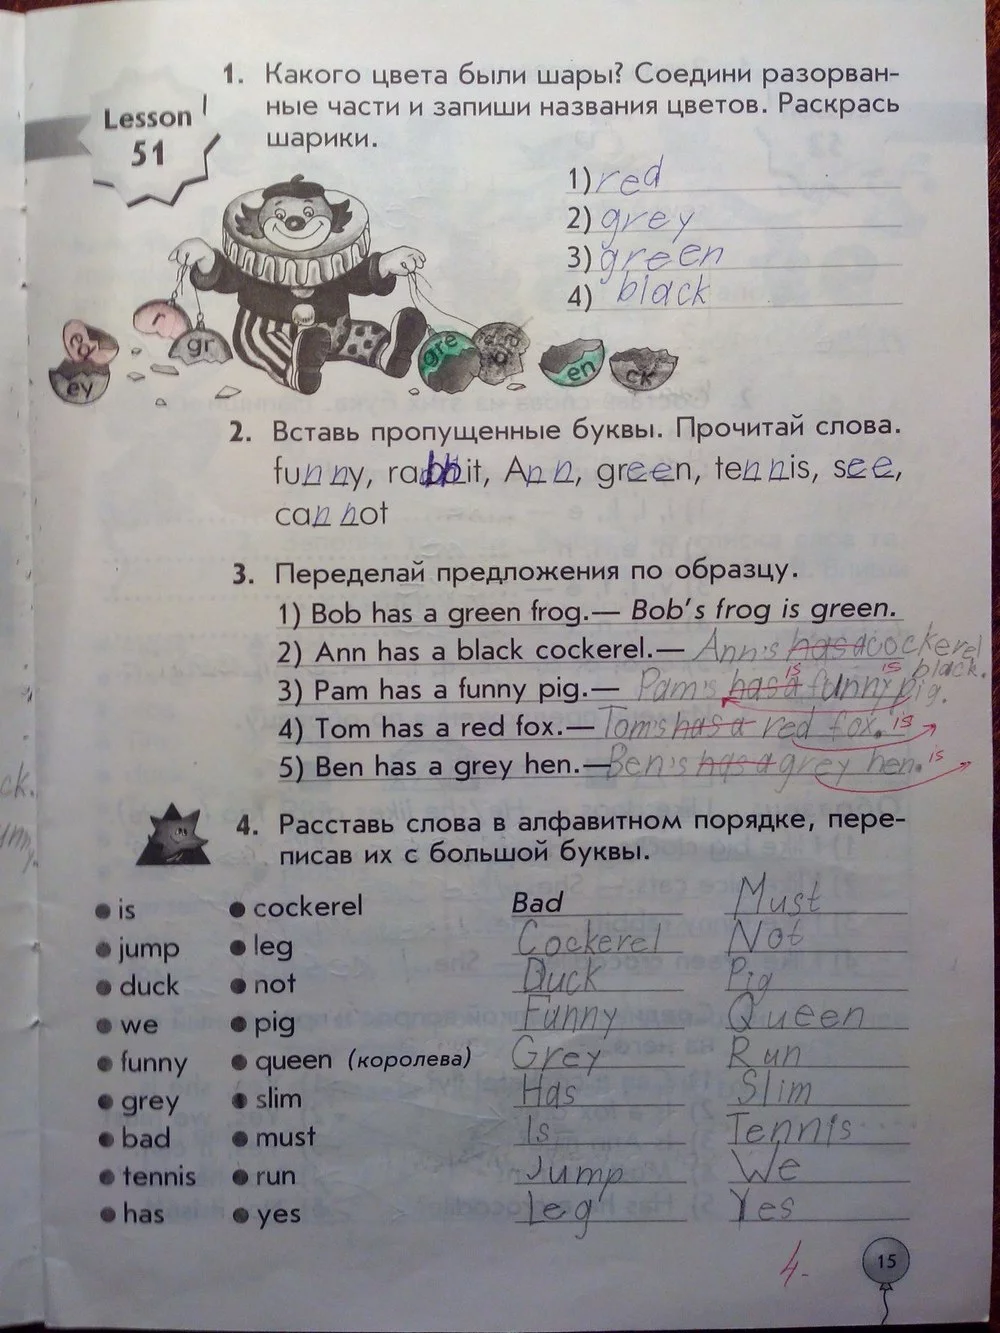 Lesson
51
1. Какого цвета были шары? Соедини разорван-
ные части и запиши названия цветов. Раскрась
шарики.
1) red
2) grey
3) green
4) black
r
gr
ed
ey
gre
en
ck
2. Вставь пропущенные буквы. Прочитай слова.
funny, rabbit, Ann, green, tennis, see,
cannot
3. Переделай предложения по образцу.
1) Bob has a green frog.— Bob's frog is green.
2) Ann has a black cockerel.— Ann's has a cockerel
is black.
3) Pam has a funny pig.— Pam's has a funny pig.
is
4) Tom has a red fox.— Tom's has a red fox. is
5) Ben has a grey hen.— Ben's has a grey hen. is
4. Расставь слова в алфавитном порядке, пере-
писав их с большой буквы.
is cockerel Bad Must
jump leg Cockerel Not
duck not Duck Pig
we pig Funny Queen
funny queen (королева) Grey Run
grey slim Has Slim
bad must Is Tennis
tennis run Jump We
has yes Leg Yes
4-
15